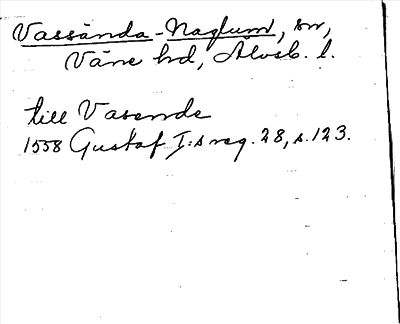 Vassända-Naglum, sn,
Väne hd, Älvsb. l.
till Vasende
1558 Gustaf I:s reg. 28, s. 123.